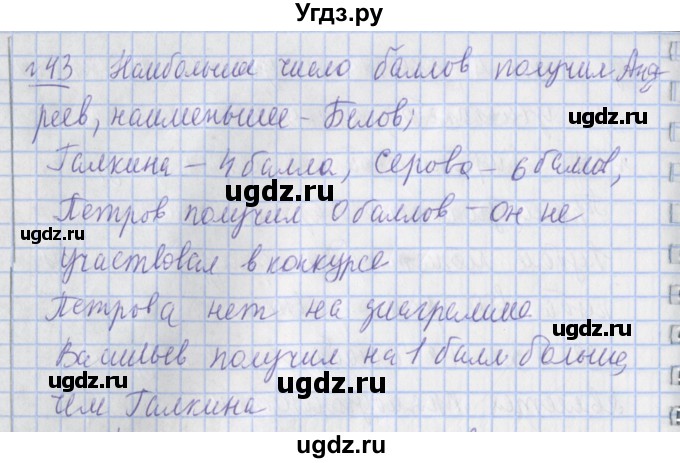 Угдз.ру
№43 Наибольшее число баллов получил Анд
реев, наименьшее - Белов;
Галкина - 4 балла, Серова - 6 баллов,
Петров получил 0 баллов - он не
участвовал в конкурсе
Петрова нет на диаграмме
Васильев получил на 1 балл больше,
чем Галкина
ugdz.ru
ugdz.ru
ugdz.ru
ugdz.ru
ugdz.ru
ugdz.ru
ugdz.ru
ugdz.ru
ugdz.ru
ugdz.ru
ugdz.ru